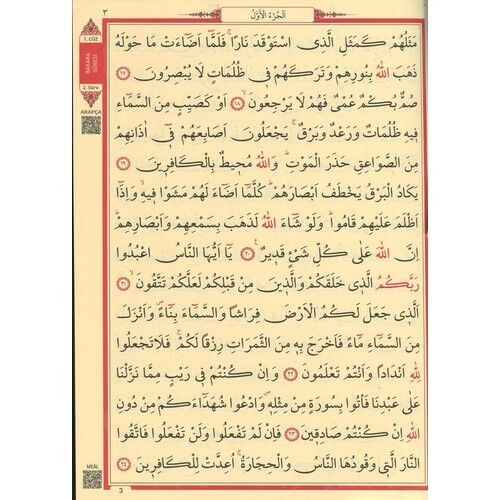 ٣
اَلْجُزْءُ الْاَوَّلُ
1.CÜZ
BAKARA SÛRESİ
2.Sûre
ARAPÇA
مَثَلُهُمْ كَمَثَلِ الَّذِى اسْتَوْقَدَ نَارًاۚ فَلَمَّٓا اَضَٓاءَتْ مَا حَوْلَهُ
ذَهَبَ اللّٰهُ بِنُورِهِمْ وَتَرَكَهُمْ فٖى ظُلُمَاتٍ لَا يُبْصِرُونَ ﴿١٧﴾
صُمٌّ بُكْمٌ عُمْىٌ فَهُمْ لَا يَرْجِعُونَۙ ﴿١٨﴾ اَوْ كَصَيِّبٍ مِنَ السَّمَٓاءِ
فٖيهِ ظُلُمَاتٌ وَرَعْدٌ وَبَرْقٌۚ يَجْعَلُونَ اَصَابِعَهُمْ فٖٓى اٰذَانِهِمْ
مِنَ الصَّوَاعِقِ حَذَرَ الْمَوْتِؕ وَاللّٰهُ مُحٖيطٌ بِالْكَافِرٖينَ ﴿١٩﴾
يَكَادُ الْبَرْقُ يَخْطَفُ اَبْصَارَهُمْؕ كُلَّمَٓا اَضَٓاءَ لَهُمْ مَشَوْا فٖيهِۙ وَاِذَٓا
اَظْلَمَ عَلَيْهِمْ قَامُواؕ وَلَوْ شَٓاءَ اللّٰهُ لَذَهَبَ بِسَمْعِهِمْ وَاَبْصَارِهِمْؕ
اِنَّ اللّٰهَ عَلٰى كُلِّ شَىْءٍ قَدٖيرٌ۟ ﴿٢٠﴾ يَٓا اَيُّهَا النَّاسُ اعْبُدُوا
رَبَّكُمُ الَّذٖى خَلَقَكُمْ وَالَّذٖينَ مِنْ قَبْلِكُمْ لَعَلَّكُمْ تَتَّقُونَۙ ﴿٢١﴾
اَلَّذٖى جَعَلَ لَكُمُ الْاَرْضَ فِرَاشًا وَالسَّمَٓاءَ بِنَٓاءًۖ وَاَنْزَلَ
مِنَ السَّمَٓاءِ مَٓاءً فَاَخْرَجَ بِهٖ مِنَ الثَّمَرَاتِ رِزْقًا لَكُمْۚ فَلَا تَجْعَلُوا
لِلّٰهِ اَنْدَادًا وَاَنْتُمْ تَعْلَمُونَ ﴿٢٢﴾ وَاِنْ كُنْتُمْ فٖى رَيْبٍ مِمَّا نَزَّلْنَا
عَلٰى عَبْدِنَا فَاْتُوا بِسُورَةٍ مِنْ مِثْلِهٖࣕ وَادْعُوا شُهَدَٓاءَكُمْ مِنْ دُونِ
اللّٰهِ اِنْ كُنْتُمْ صَادِقٖينَ ﴿٢٣﴾ فَاِنْ لَمْ تَفْعَلُوا وَلَنْ تَفْعَلُوا فَاتَّقُوا
النَّارَ الَّتٖى وَقُودُهَا النَّاسُ وَالْحِجَارَةُۚ اُعِدَّتْ لِلْكَافِرٖينَ ﴿٢٤﴾
MEÂL
3